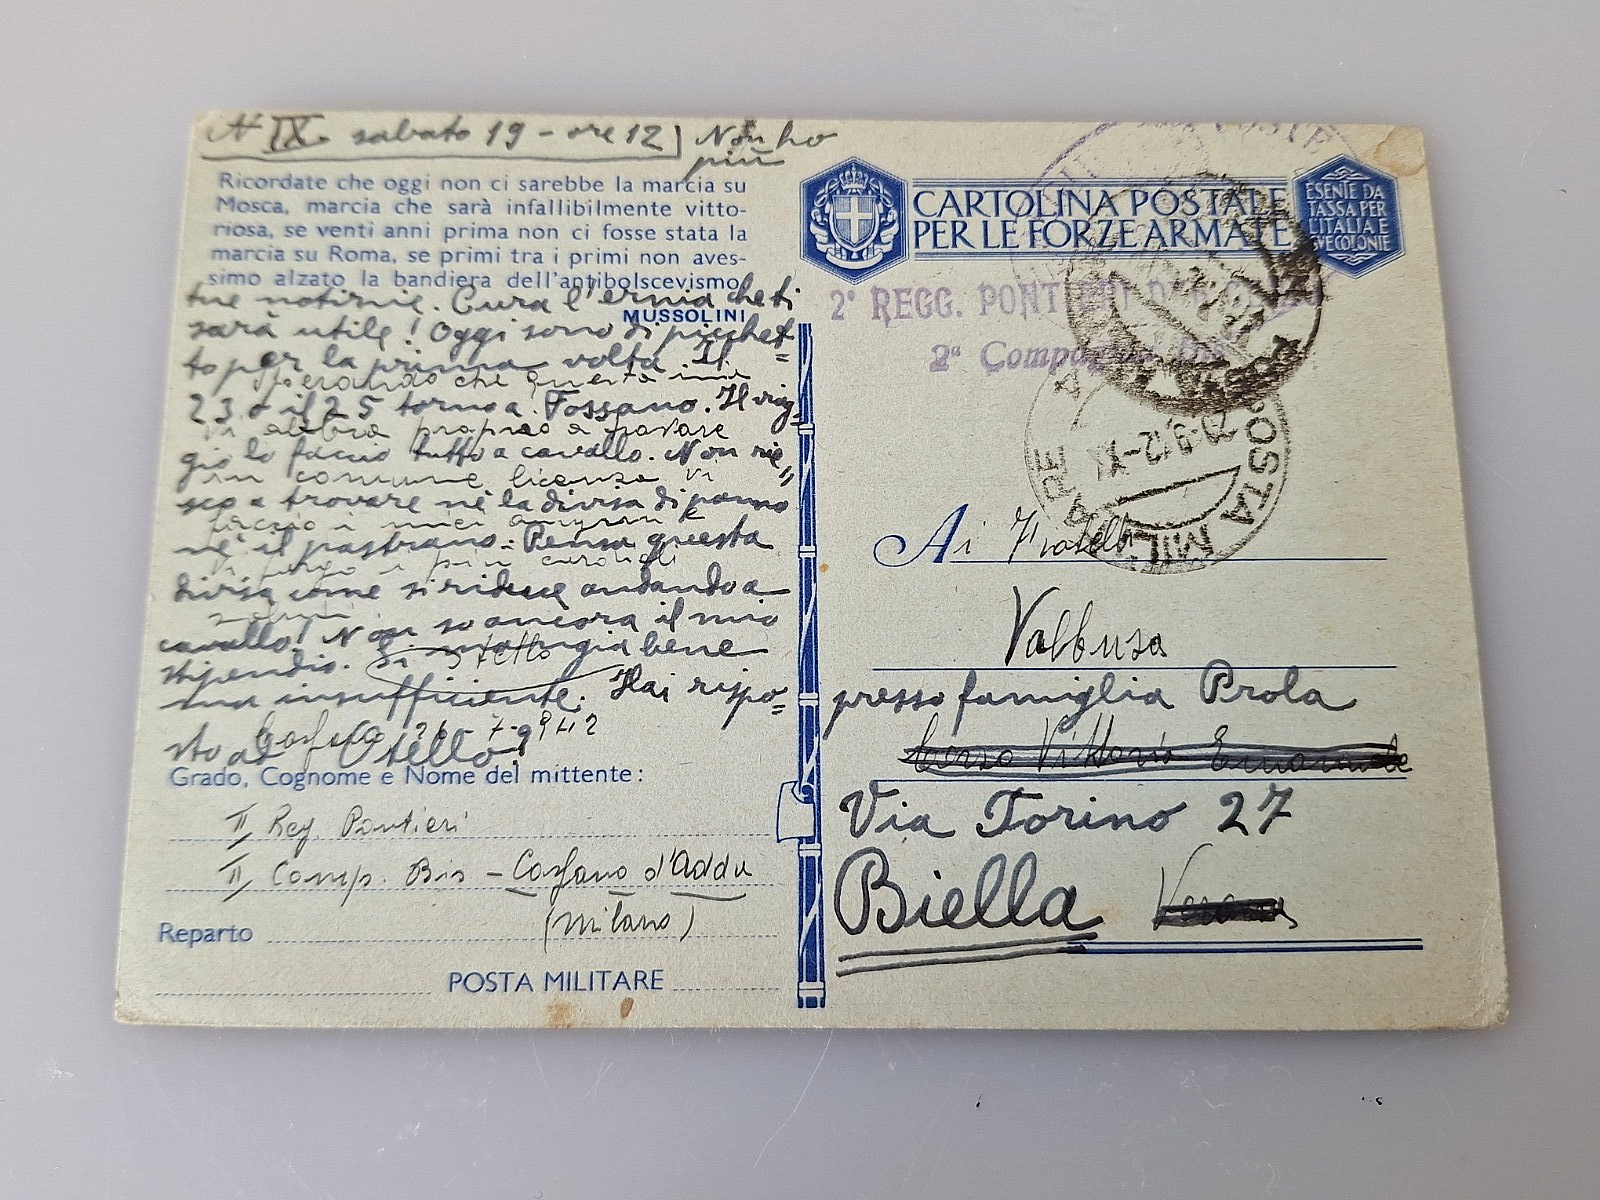 N IX. sabato 19 - ore 12 Non ho
più
Ricordate che oggi non ci sarebbe la marcia su
Mosca, marcia che sarà infallibilmente vitto-
riosa, se venti anni prima non ci fosse stata la
marcia su Roma, se primi tra i primi non aves-
simo alzato la bandiera dell'antibolscevismo
MUSSOLINI
tue notizie. Cura l'ernia che ti
sarà utile! Oggi sono di picchet=
to per la prima volta. Il
sperando che questa mia
23 o il 25 torno a Fossano. Il viag=
vi abbia proprio a trovare
gio lo faccio tutto a cavallo. Non rie=
in comune licenza vi
sco a trovare nè la divisa di panno
faccio i miei auguri e
nè il pastrano. Pensa questa
vi porgo i più cordiali
divisa come si riduce andando a
saluti
cavallo! Non so ancora il mio
stipendio. Si mangia bene
Otello
ma insufficiente. Hai rispo=
Cassano 26-7-942
sto ad Otello?
Grado, Cognome e Nome del mittente:
II Reg. Pontieri
II Comp. Bis - Cassano d'Adda
(Milano)
Reparto
POSTA MILITARE
CARTOLINA POSTALE
PER LE FORZE ARMATE
ESENTE DA
TASSA PER
L'ITALIA E
SUE COLONIE
2° REGG. PONTIERI
2ª Compagnia
POSTA MILITARE
Ai Fratelli
Valbusa
presso famiglia Prola
Corso Vittorio Emanuele
Via Torino 27
Biella